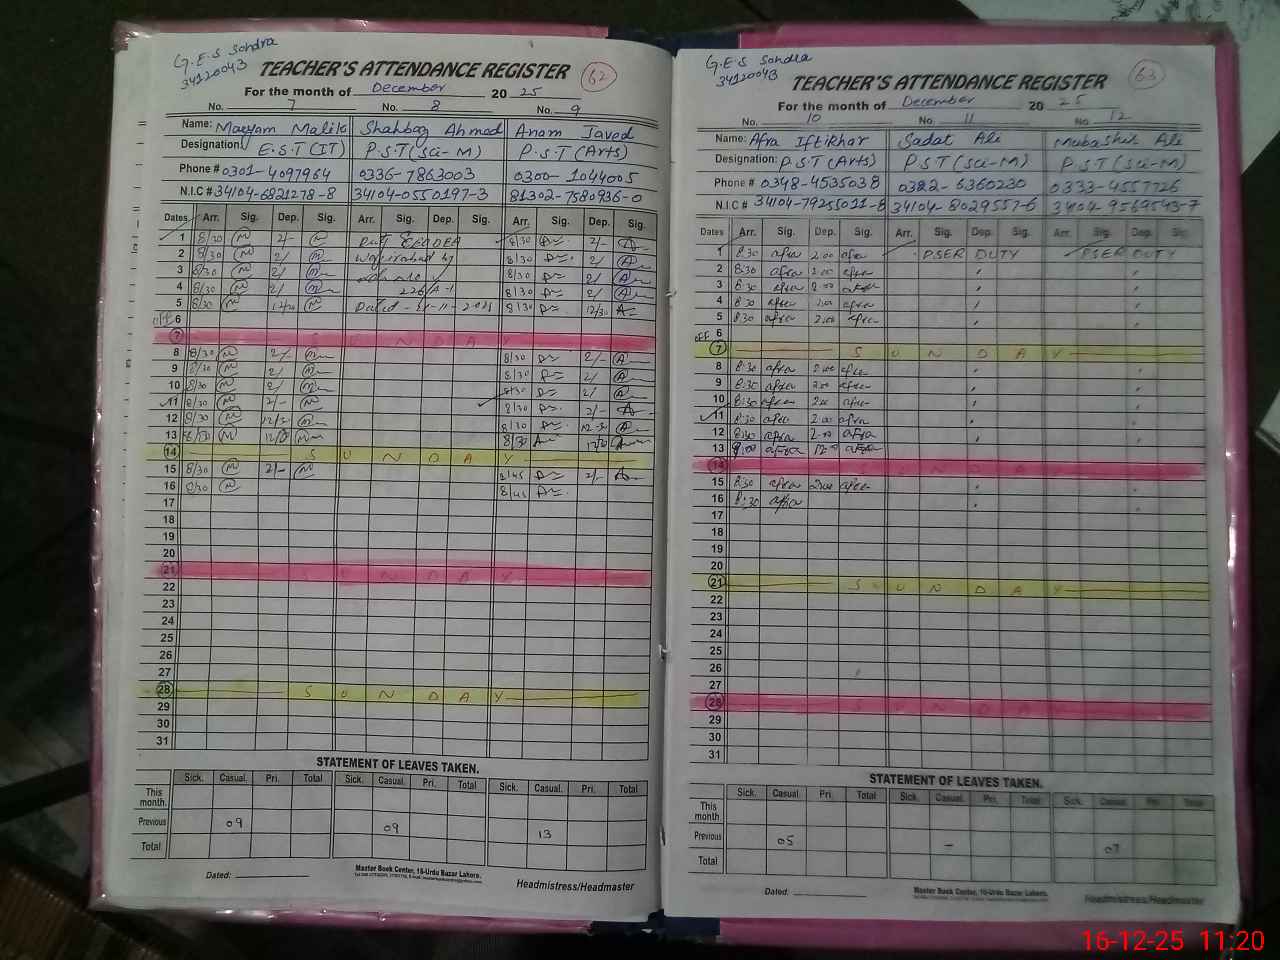 G.E.S Sondra
34120043
TEACHER'S ATTENDANCE REGISTER 62
For the month of December 2025
No. 7 No. 8 No. 9
Name: Maryam Malik Shahbaz Ahmed Anam Javed
Designation: E.S.T (IT) P.S.T (Sci-M) P.S.T (Arts)
Phone # 0301-4097964 0336-7863003 0300-1044005
N.I.C # 34104-6821278-8 34104-0550197-3 81302-7580936-0
Dates Arr. Sig. Dep. Sig. Arr. Sig. Dep. Sig. Arr. Sig. Dep. Sig.
1 8/30 M 2/- M 8/30 2/- A
2 8/30 M 2/ M 8/30 2/ A
3 8/30 M 2/ M 8/30 2/ A
4 8/30 M 2/ M 8/30 2/ A
5 8/30 M 12/30 M 8/30 12/30 A
6
7 S U N D A Y
8 8/30 M 2/- M 8/30 2/- A
9 8/30 M 2/ M 8/30 2/ A
10 8/30 M 2/ M 8/30 2/ A
11 8/30 M 2/- M 8/30 2/- A
12 8/30 M M 8/30 A
13 8/30 M M 8/30 A
14 S U N D A Y
15 8/30 M 2/- M 8/45 2/- A
16 8/30 M 8/45
17
18
19
20
21 S U N D A Y
22
23
24
25
26
27
28 S U N D A Y
29
30
31
STATEMENT OF LEAVES TAKEN.
Sick. Casual. Pri. Total Sick. Casual. Pri. Total Sick. Casual. Pri. Total
This month.
Previous 09 09 13
Total
Dated:
Master Book Center, 16-Urdu Bazar Lahore.
Headmistress/Headmaster
G.E.S Sondra
34120043
TEACHER'S ATTENDANCE REGISTER 63
For the month of December 2025
No. 10 No. 11 No. 12
Name: Afra Iftikhar Sadat Ali Mubashir Ali
Designation: P.S.T (Arts) P.S.T (Sci-M) P.S.T (Sci-M)
Phone # 0348-4535038 0322-6360230 0333-4557726
N.I.C # 34104-7925011-8 34104-8029557-6 34104-9569543-7
Dates Arr. Sig. Dep. Sig. Arr. Sig. Dep. Sig. Arr. Sig. Dep. Sig.
1 8:30 afra 2.00 afra PSER DUTY PSER DUTY
2 8:30 afra 2.00 afra
3 8:30 afra 2.00 afra
4 8:30 afra 2.00 afra
5 8:30 afra 2.00 afra
6
OFF
7 S U N D A Y
8 8:30 afra 2.00 afra
9 8:30 afra 2.00 afra
10 8:30 afra 2.00 afra
11 8:30 afra 2.00 afra
12 8:30 afra 2.00 afra
13 9:00 afra 12.00 afra
14 S U N D A Y
15 8:30 afra 2.00 afra
16 8:30 afra
17
18
19
20
21 S U N D A Y
22
23
24
25
26
27
28 S U N D A Y
29
30
31
STATEMENT OF LEAVES TAKEN.
Sick. Casual Pri. Total Sick. Casual. Pri. Total Sick. Casual. Pri. Total
This month
Previous 05 - 07
Total
Dated:
Master Book Center, 16-Urdu Bazar Lahore.
Headmistress/Headmaster
16-12-25 11:20